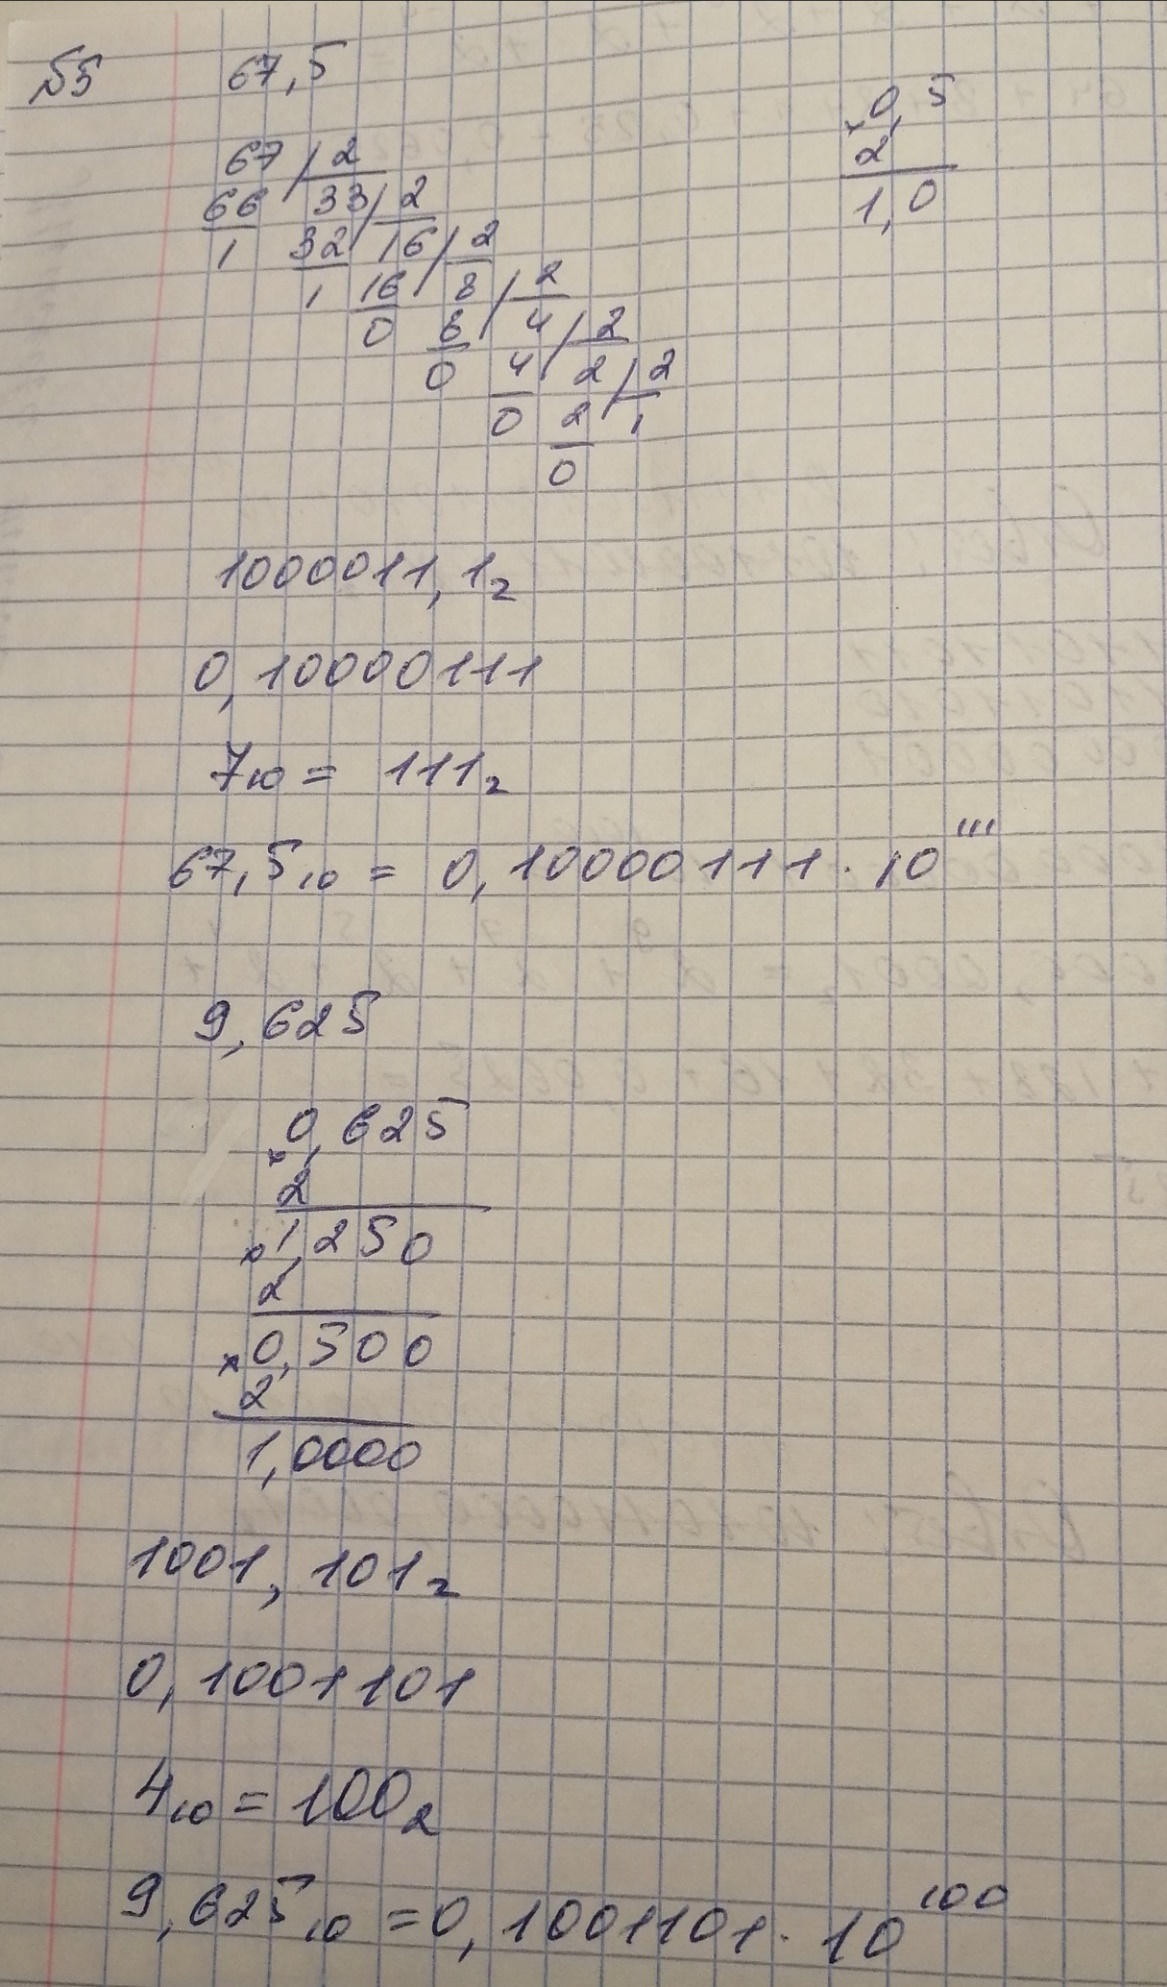 №5 67,5
0,5
× 2
1,0
67 / 2
66 33 / 2
1 32 16 / 2
1 16 8 / 2
0 8 4 / 2
0 4 2 / 2
0 2 1
0
1000011,1₂
0,10000111
7₁₀ = 111₂
67,5₁₀ = 0,10000111 · 10¹¹¹
9,625
0,625
× 2
1,250
× 2
0,500
× 2
1,0000
1001,101₂
0,1001101
4₁₀ = 100₂
9,625₁₀ = 0,1001101 · 10¹⁰⁰